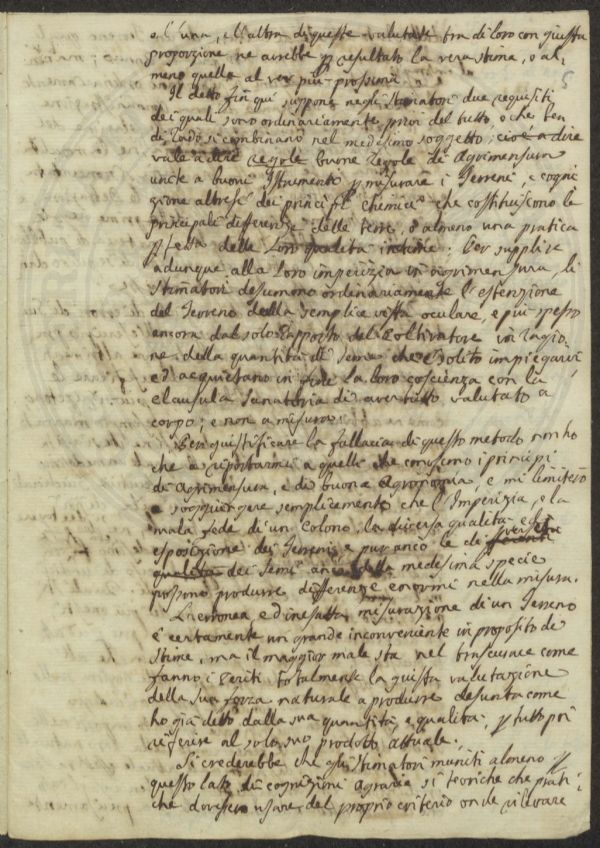 e l'una, e l'altra di queste valutate tra di loro con giusta
proporzione ne avrebbe p resultato la vera stima, o al,
meno quella al ver più prossima.
5
Il detto fin quì suppone negli stimatori due requisiti
dei quali sono ordinariamente privi del tutto, o che ben
di rado si combinano nel medesimo soggetto; cioè a dire
vale a dire regole buone regole di Agrimensura
unite a buoni Istrumenti p misurare i Terreni, e cogni
zione altresì dei principj chemici che costituiscono le
principali differenze delle terre, o almeno una pratica
pfetta delle loro qualità intime; Per supplire
adunque alla loro imperizia in agrimensura, li
stimatori desumono ordinariamente l'estenzione
del Terreno dalla semplice vista oculare, e più spesso
ancora dal solo rapporto del Coltivatore in ragio,
ne della quantità di seme che è solito impiegarvi
ed acquietano in fine la loro coscienza con la
clausula sanatoria di aver tutto valutato a
corpo, e non a misura.
Per giustificare la fallacia di questo metodo non ho
che a riportarmi a quelli che conoscono i principj
di Agrimensura, e di buona Agronomia, e mi limiterò
a soggiungere semplicemente che l'Imperizia, e la
mala fede di un Colono, la diversa qualità e la
esposizione dei Terreni, e pur anco le diverse
qualità dei semi anco della medesima specie
possono produrre differenze enormi nella misura.
L'erronea, ed inesatta misurazione di un Terreno
è certamente un grande inconveniente in proposito di
stime, ma il maggior male sta nel trascurare come
fanno i Periti totalmente la giusta valutazione
della sua forza naturale a produrre desunta come
ho già detto dalla sua quantità, e qualità, p tutto poi
riferire al solo suo prodotto attuale.
Si crederebbe che gli stimatori muniti almeno p
questo lato di cognizioni agrarie sì teoriche che prati,
che dovessero usare del proprio criterio onde rilevare